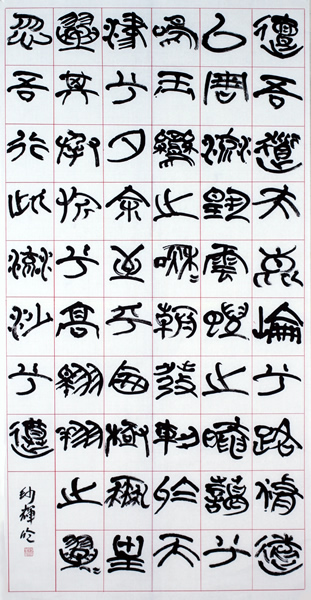 邅吾道夫崑崙兮路脩遠
以周流揚雲霓之晻藹兮
鳴玉鸞之啾朝發軔於天
津兮夕余至乎西極鳳皇
翼其承旂兮高翱翔之翼
忽吾行此流沙兮遵